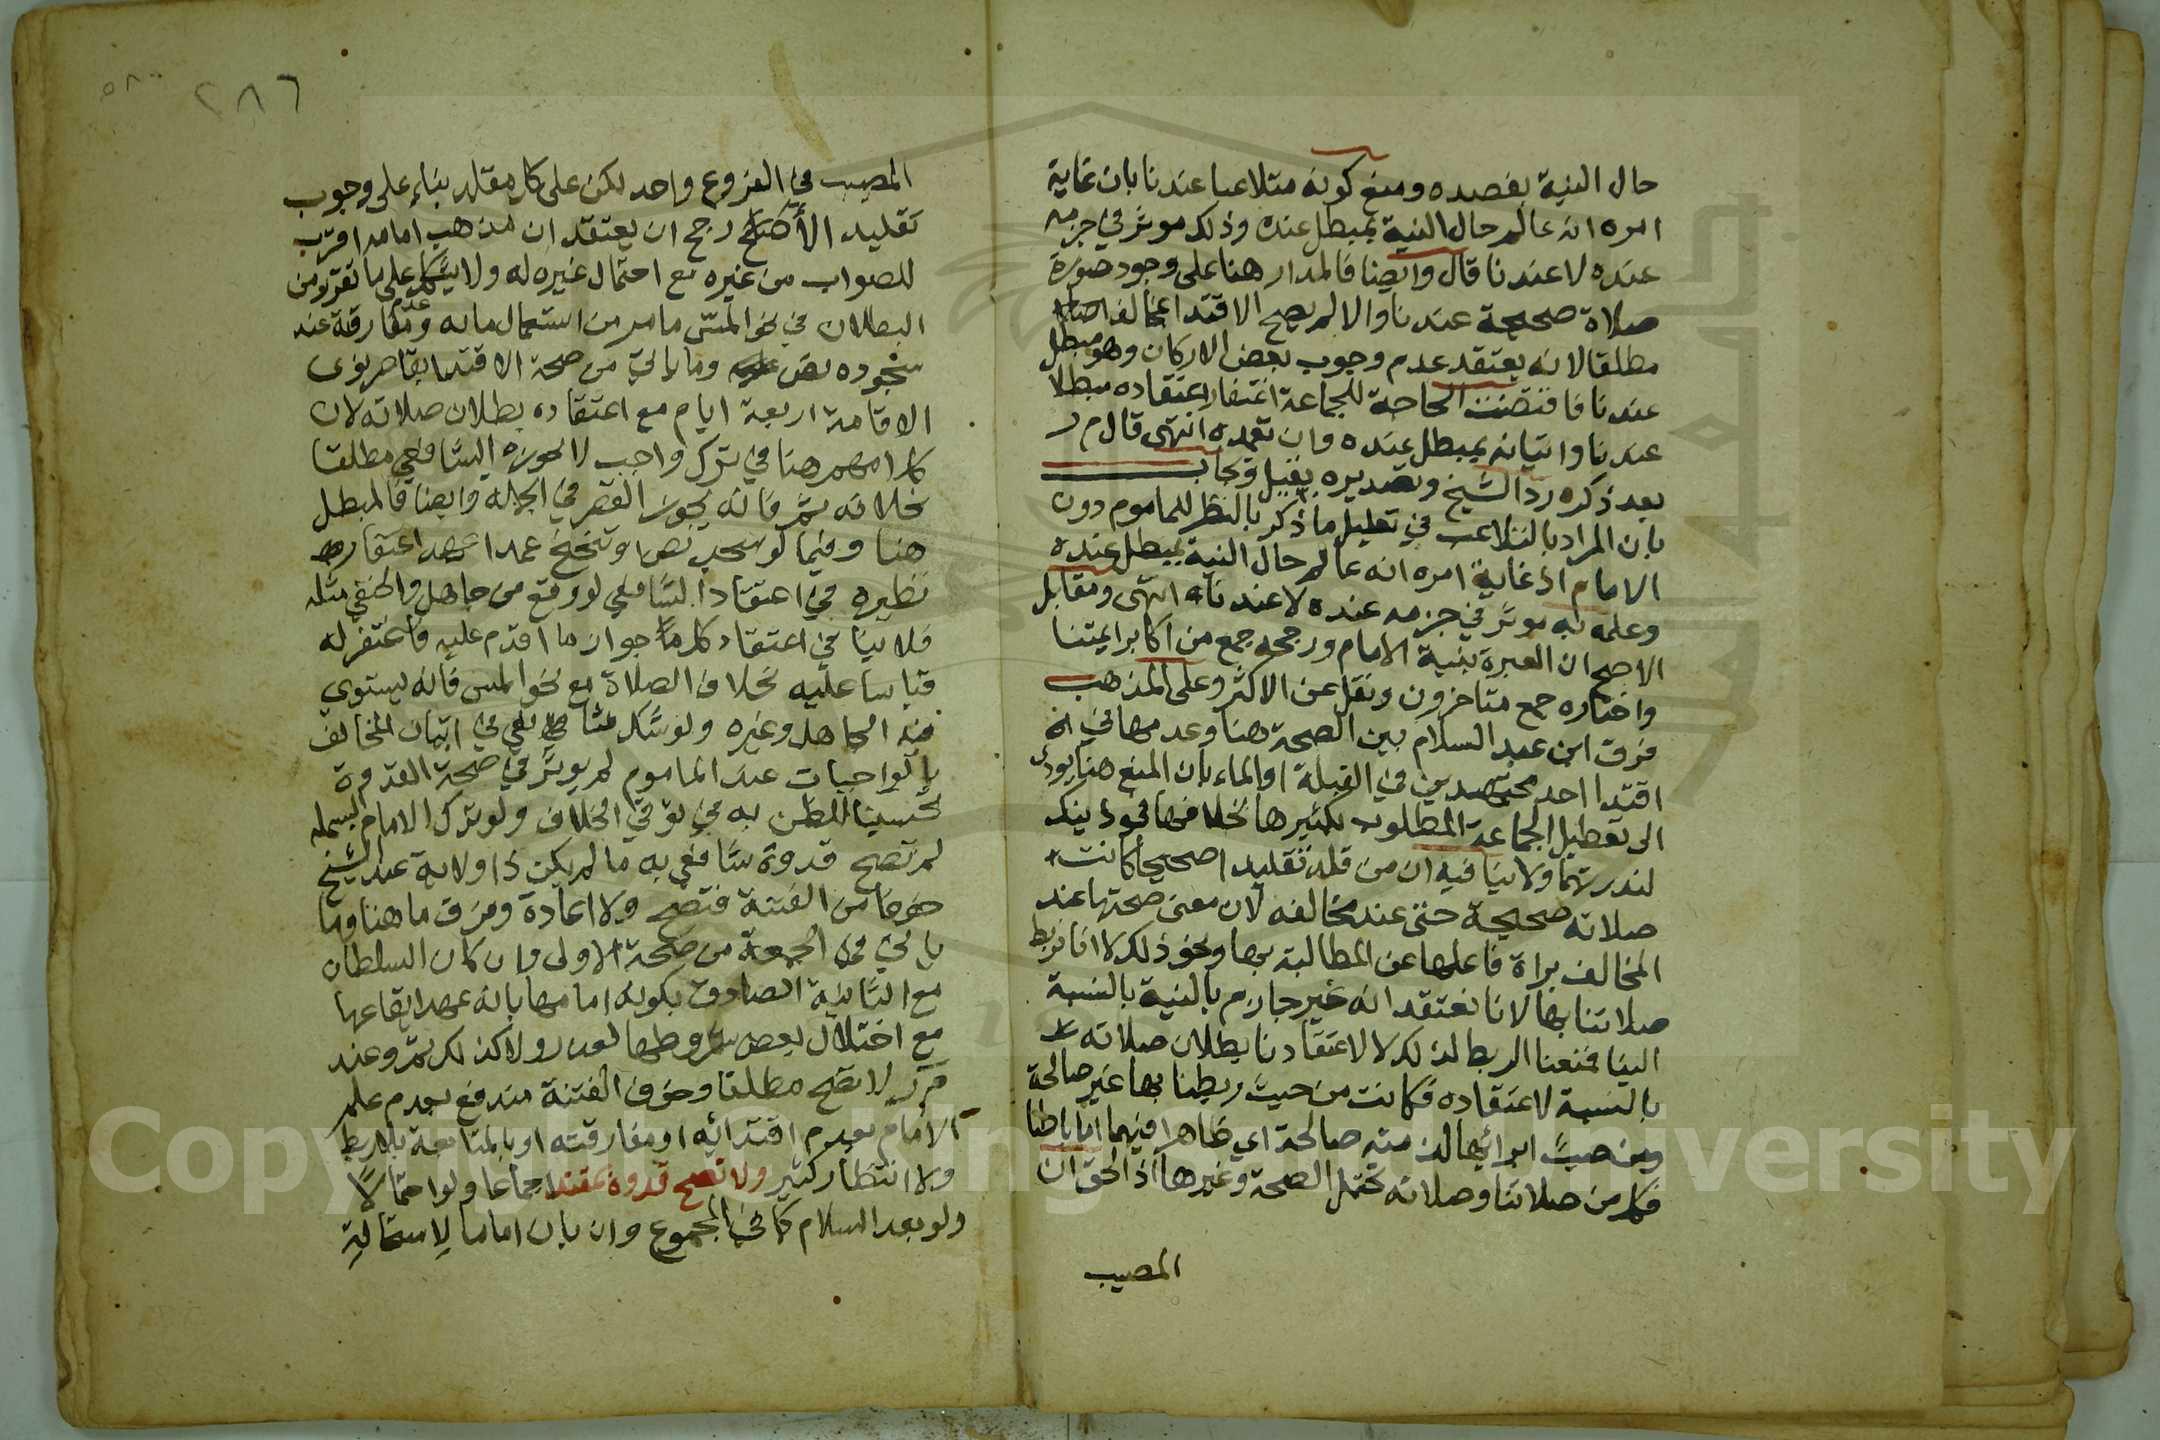 حال النية بفصده ومنع كونه متلاعبا عندنا بان غاية
امره انه عالم حال النية بمبطل عنده وذلك موثر في جزمه
عنده لا عندنا قال وايضا فالمدار هنا على وجود صورة
صلاة صحيحة عندنا والا لم يصح الاقتدا بمخالف
مطلقا لانه يعتقد عدم وجوب بعض الاركان وهو مبطل
عندنا فاقتضت الحاجة للجماعة اغتفار اعتقاده مبطلا
عندنا واتيانه بمبطل عنده وان تعمده انتهى قال م ر
بعد ذكره رد الشيخ وتصديره بقيل ويجاب
بان المراد بالتلاعب في تعليل ما ذكر بالنظر للماموم دون
الامام اذ غاية امره انه عالم حال النية بمبطل عنده
وعلمه به موثر في جزمه عنده لا عندنا انتهى ومقابل
الاصح ان العبرة بنية الامام ورجحه جمع من اكابر ايمتنا
واختاره جمع متاخرون ونقل عن الاكثر وعلى المذهب
فرق ابن عبد السلام بين الصحة هنا وعدمها في
اقتدا احد مجتهدين في القبلة او الماء بان المنع هنا يودي
الى تعطيل الجماعة المطلوب تكثيرها بخلافها في ذينك
لندرتهما ولا ينافيه ان من قلد تقليدا صحيحا كانت
صلاته صحيحة حتى عند مخالفه لان معنى صحتها عند
المخالف براة فاعلها عن المطالبة بها ونحو ذلك لا انا نربط
صلاتنا بها لانا نعتقد انه غير جازم بالنية بالنسبة
الينا فمنعنا الربط لذلك لا لاعتقادنا بطلان صلاته
بالنسبة لاعتقاده فكانت من حيث ربطنا بها غير صالحة
ومن حيث ابرائها لذمته صالحة اي ظاهرا فيهما اما باطنا
فكل من صلاتنا وصلاته تحتمل الصحة وغيرها اذ الحق ان
المصيب
٢٨٦
المصيب في الفروع واحد لكن على كل مقلد بناء على وجوب
تقليد الأصح رجح ان يعتقد ان مذهب امامه اقرب
للصواب من غيره مع احتمال غيره له ولا يشكل على ما تقرر من
البطلان في نحو المس ما مر من استعمال مائه وعدم مفارقة عند
سجوده وما ياتي من صحة الاقتدا بقاصر نوى
الاقامة اربعة ايام مع اعتقاده بطلان صلاته لان
كلامهم هنا في ترك واجب لا يجوزه الشافعي مطلقا
بخلافه ثم فانه يجوز القصر في الجملة وايضا فالمبطل
هنا وفيما لو سجد او تنحنح عمدا
نظيره في اعتقاد الشافعي لو وقع من جاهل والحنفي مثله
فلا ينافي اعتقاد كل جواز ما اقدم عليه فاغتفر له
قياسا عليه بخلاف الصلاة مع نحو المس فانه يستوي
فيه الجاهل وغيره ولو شك شافعي في اتيان المخالف
بالواجبات عند الماموم لم يوثر في صحة القدوة
تحسينا للظن به في توقي الخلاف ولو ترك الامام البسملة
لم تصح قدوة شافعي به ما لم يكن ذا ولاية عند الشيخ
خوفا من الفتنة فتصح ولا اعادة وفرق ما هنا وما
ياتي في الجمعة من صحة الاولى وان كان السلطان
مع الثانية الصادق بكونه امامها بانه عهد ايقاعها
مع اختلال بعض شروطها لعذر ولا كذلك ثم وعند
م ر لا تصح مطلقا وخوف الفتنة مندفع بعدم علم
الامام بعدم اقتدائه او مفارقته او بالمتابعة بلا ربط
ولا انتظار كثير ولا تصح قدوة بمقتد اجماعا ولو احتمالا
ولو بعد السلام كما في المجموع وان بان اماما لاستحالة
Copyright © King Saud University